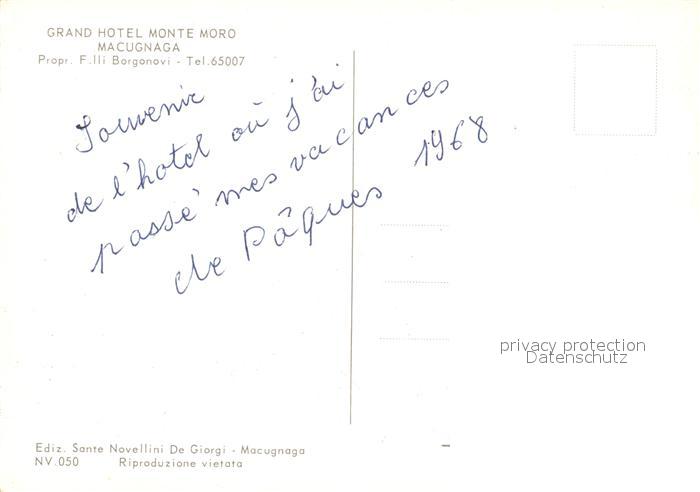 GRAND HOTEL MONTE MORO
MACUGNAGA
Propr. F.lli Borgonovi - Tel.65007
Souvenir
de l'hotel où j'ai
passé mes vacances
de Pâques 1968
privacy protection
Datenschutz
Ediz. Sante Novellini De Giorgi - Macugnaga
NV.050 Riproduzione vietata